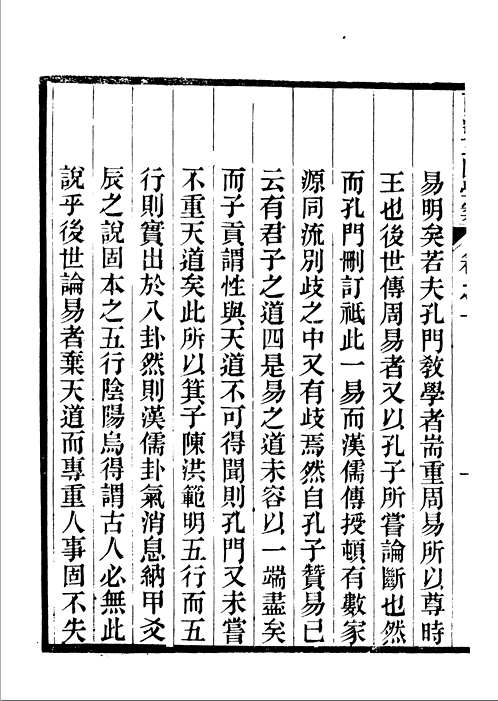 易明矣若夫孔門敎學者耑重周易所以尊時
王也後世傳周易者又以孔子所嘗論斷也然
而孔門刪訂祇此一易而漢儒傳授頓有數家
源同流別歧之中又有歧焉然自孔子贊易已
云有君子之道四是易之道未容以一端盡矣
而子貢謂性與天道不可得聞則孔門又未嘗
不重天道矣此所以箕子陳洪範明五行而五
行則實出於八卦然則漢儒卦氣消息納甲爻
辰之說固本之五行陰陽烏得謂古人必無此
說乎後世論易者棄天道而專重人事固不失